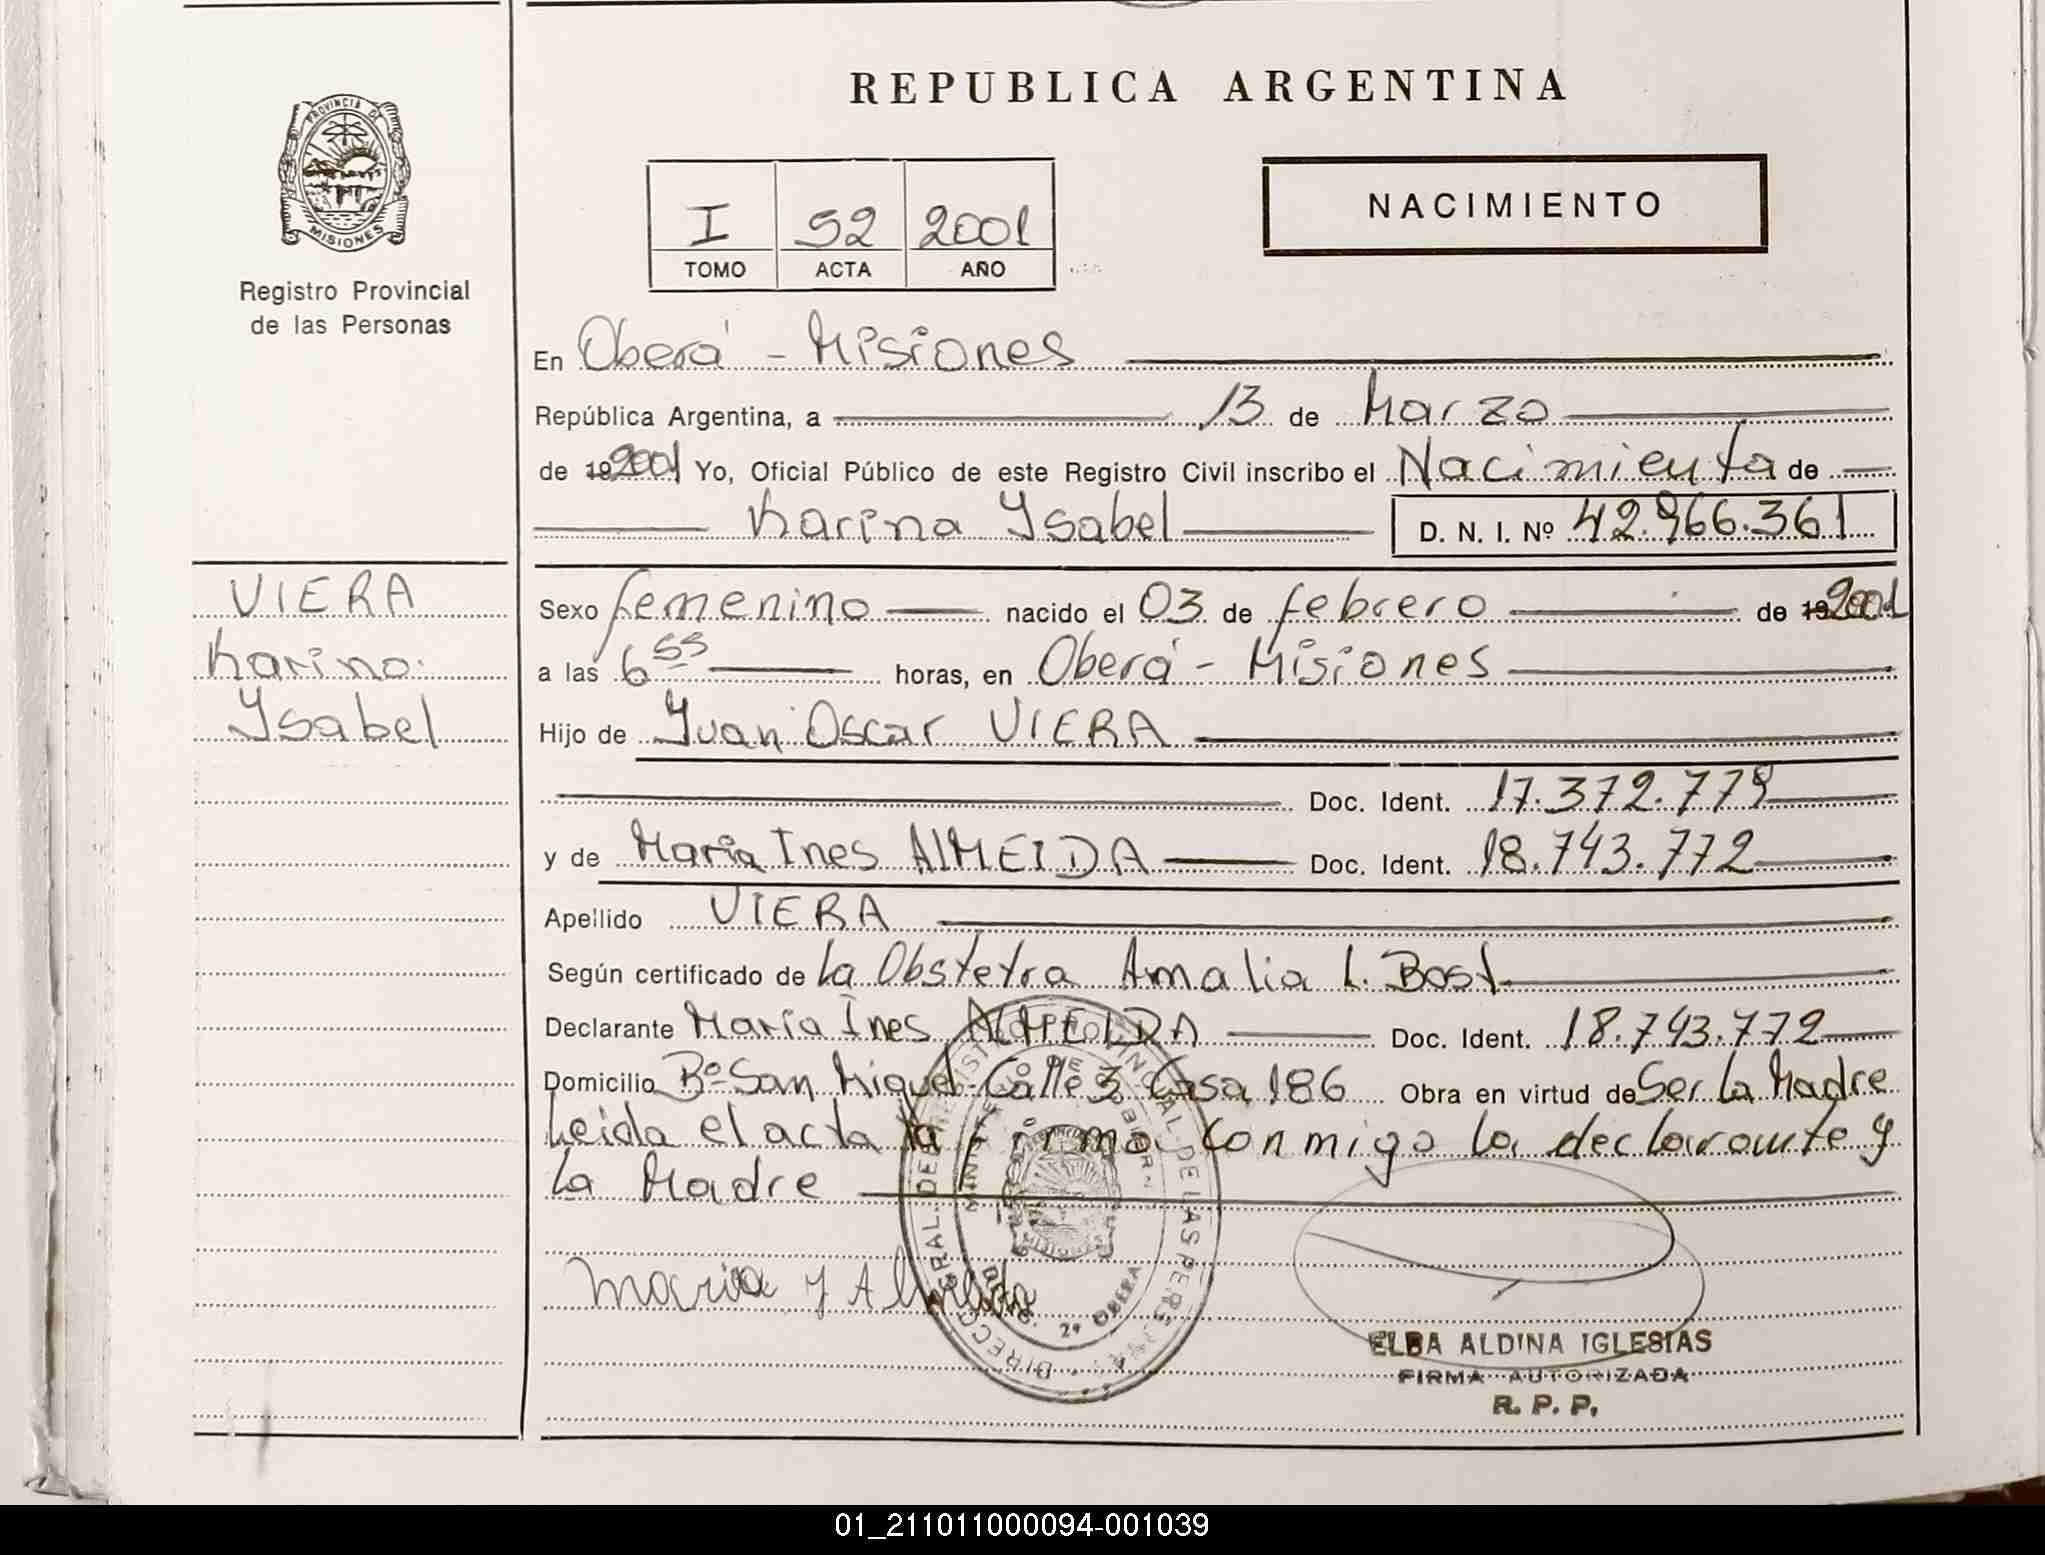 REPUBLICA ARGENTINA
PROVINCIA DE
MISIONES
Registro Provincial
de las Personas
I 52 2001
TOMO ACTA AÑO
NACIMIENTO
En Oberá - Misiones
República Argentina, a 13 de Marzo
de 192001 Yo, Oficial Público de este Registro Civil inscribo el Nacimiento de
Karina Ysabel D. N. I. Nº 42.966.361
VIERA
Karina
Ysabel
Sexo femenino nacido el 03 de febrero de 192001
a las 6 55 horas, en Oberá - Misiones
Hijo de Juan Oscar VIERA
Doc. Ident. 17.372.779
y de María Ines ALMEIDA Doc. Ident. 18.743.772
Apellido VIERA
Según certificado de La Obstetra Amalia L. Bost
Declarante María Ines ALMEIDA Doc. Ident. 18.743.772
Domicilio Bº San Miguel - Calle 3 Casa 186 Obra en virtud de Ser La Madre
Leida el acta la firma conmigo la declarante y
la Madre
maria y Almeida
DIRECC. GENERAL DEL REGISTRO PROVINCIAL DE LAS PERSONAS
MINISTERIO DE GOBIERNO
2ª OBERA
ELBA ALDINA IGLESIAS
FIRMA AUTORIZADA
R. P. P.
01_211011000094-001039